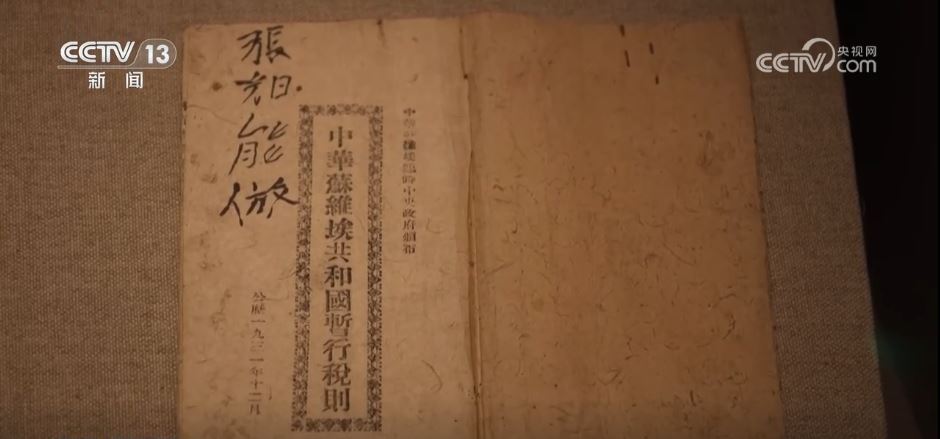 CCTV 13
新闻
央视网
CCTV.com
中華蘇維埃臨時中央政府頒布
中華蘇維埃共和國暫行稅則
公歷一九三一年十二月
張
能做